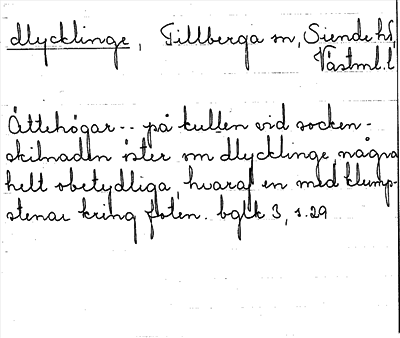 Ålycklinge, Tillberga sn, Siende hd,
Västml. l
Ättehögar -- på kullen vid socken-
skilnaden öster om Ålycklinge, några
helt obetydliga, hvaraf en med klump-
stenar kring foten. bglk 3, s. 29